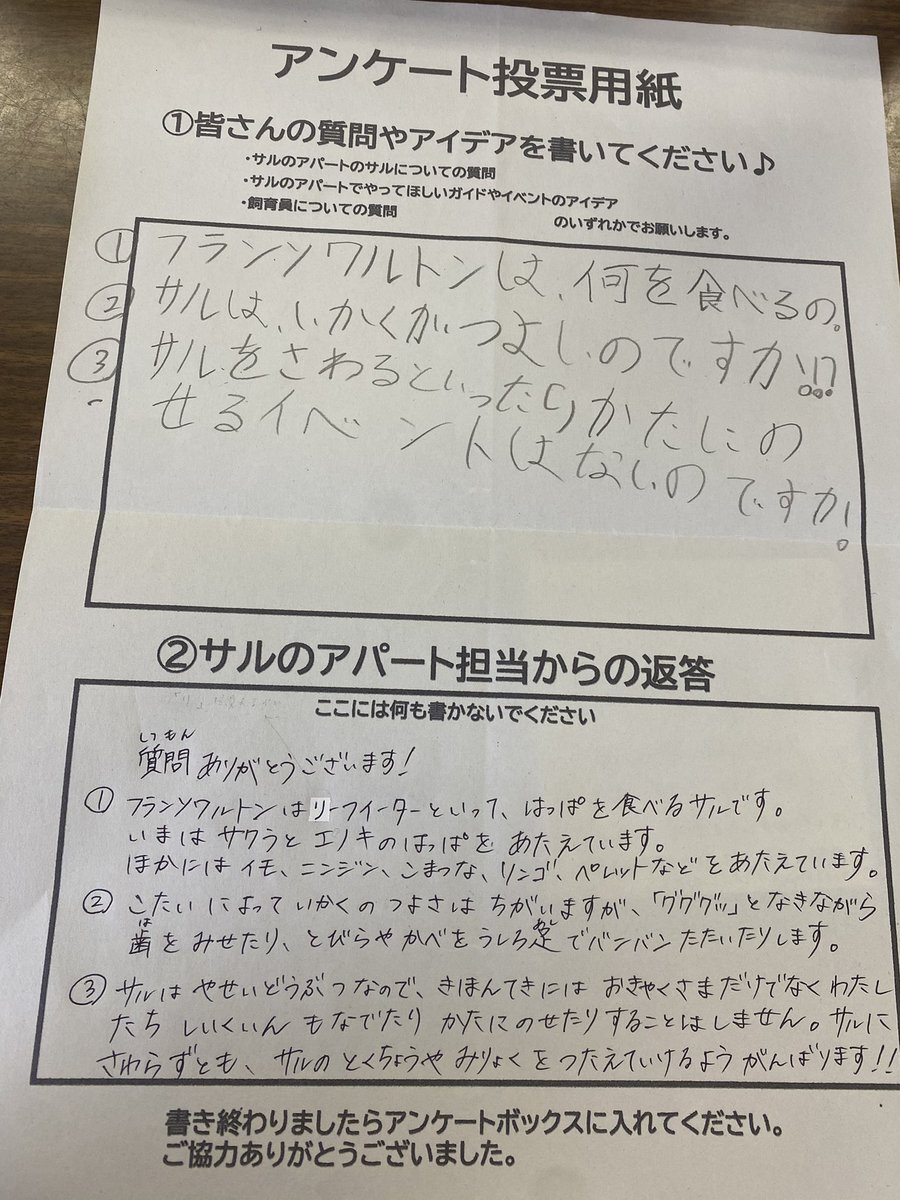 アンケート投票用紙
①皆さんの質問やアイデアを書いてください♪
・サルのアパートのサルについての質問
・サルのアパートでやってほしいガイドやイベントのアイデア
・飼育員についての質問
のいずれかでお願いします。
① フランソワルトンは、何を食べるの。
② サルは、いかくがつよしいのですか!!?
③ サルをさわるといったりかたにの
せるイベントはないのですか!
②サルのアパート担当からの返答
ここには何も書かないでください
しつもん
質問ありがとうございます!
① フランソワルトンはリーフイーターといって、はっぱを食べるサルです。
いまはサクラとエノキのはっぱをあたえています。
ほかにはイモ、ニンジン、こまつな、リンゴ、ペレットなどをあたえています。
② こたいによっていかくのつよさはちがいますが、「グググッ」となきながら
は あし
歯をみせたり、とびらやかべをうしろ足でバンバンたたいたりします。
③ サルはやせいどうぶつなので、きほんてきにはおきゃくさまだけでなくわたし
たちしいくいんもなでたりかたにのせたりすることはしません。サルに
さわらずとも、サルのとくちょうやみりょくをつたえていけるようがんばります!!
書き終わりましたらアンケートボックスに入れてください。
ご協力ありがとうございました。